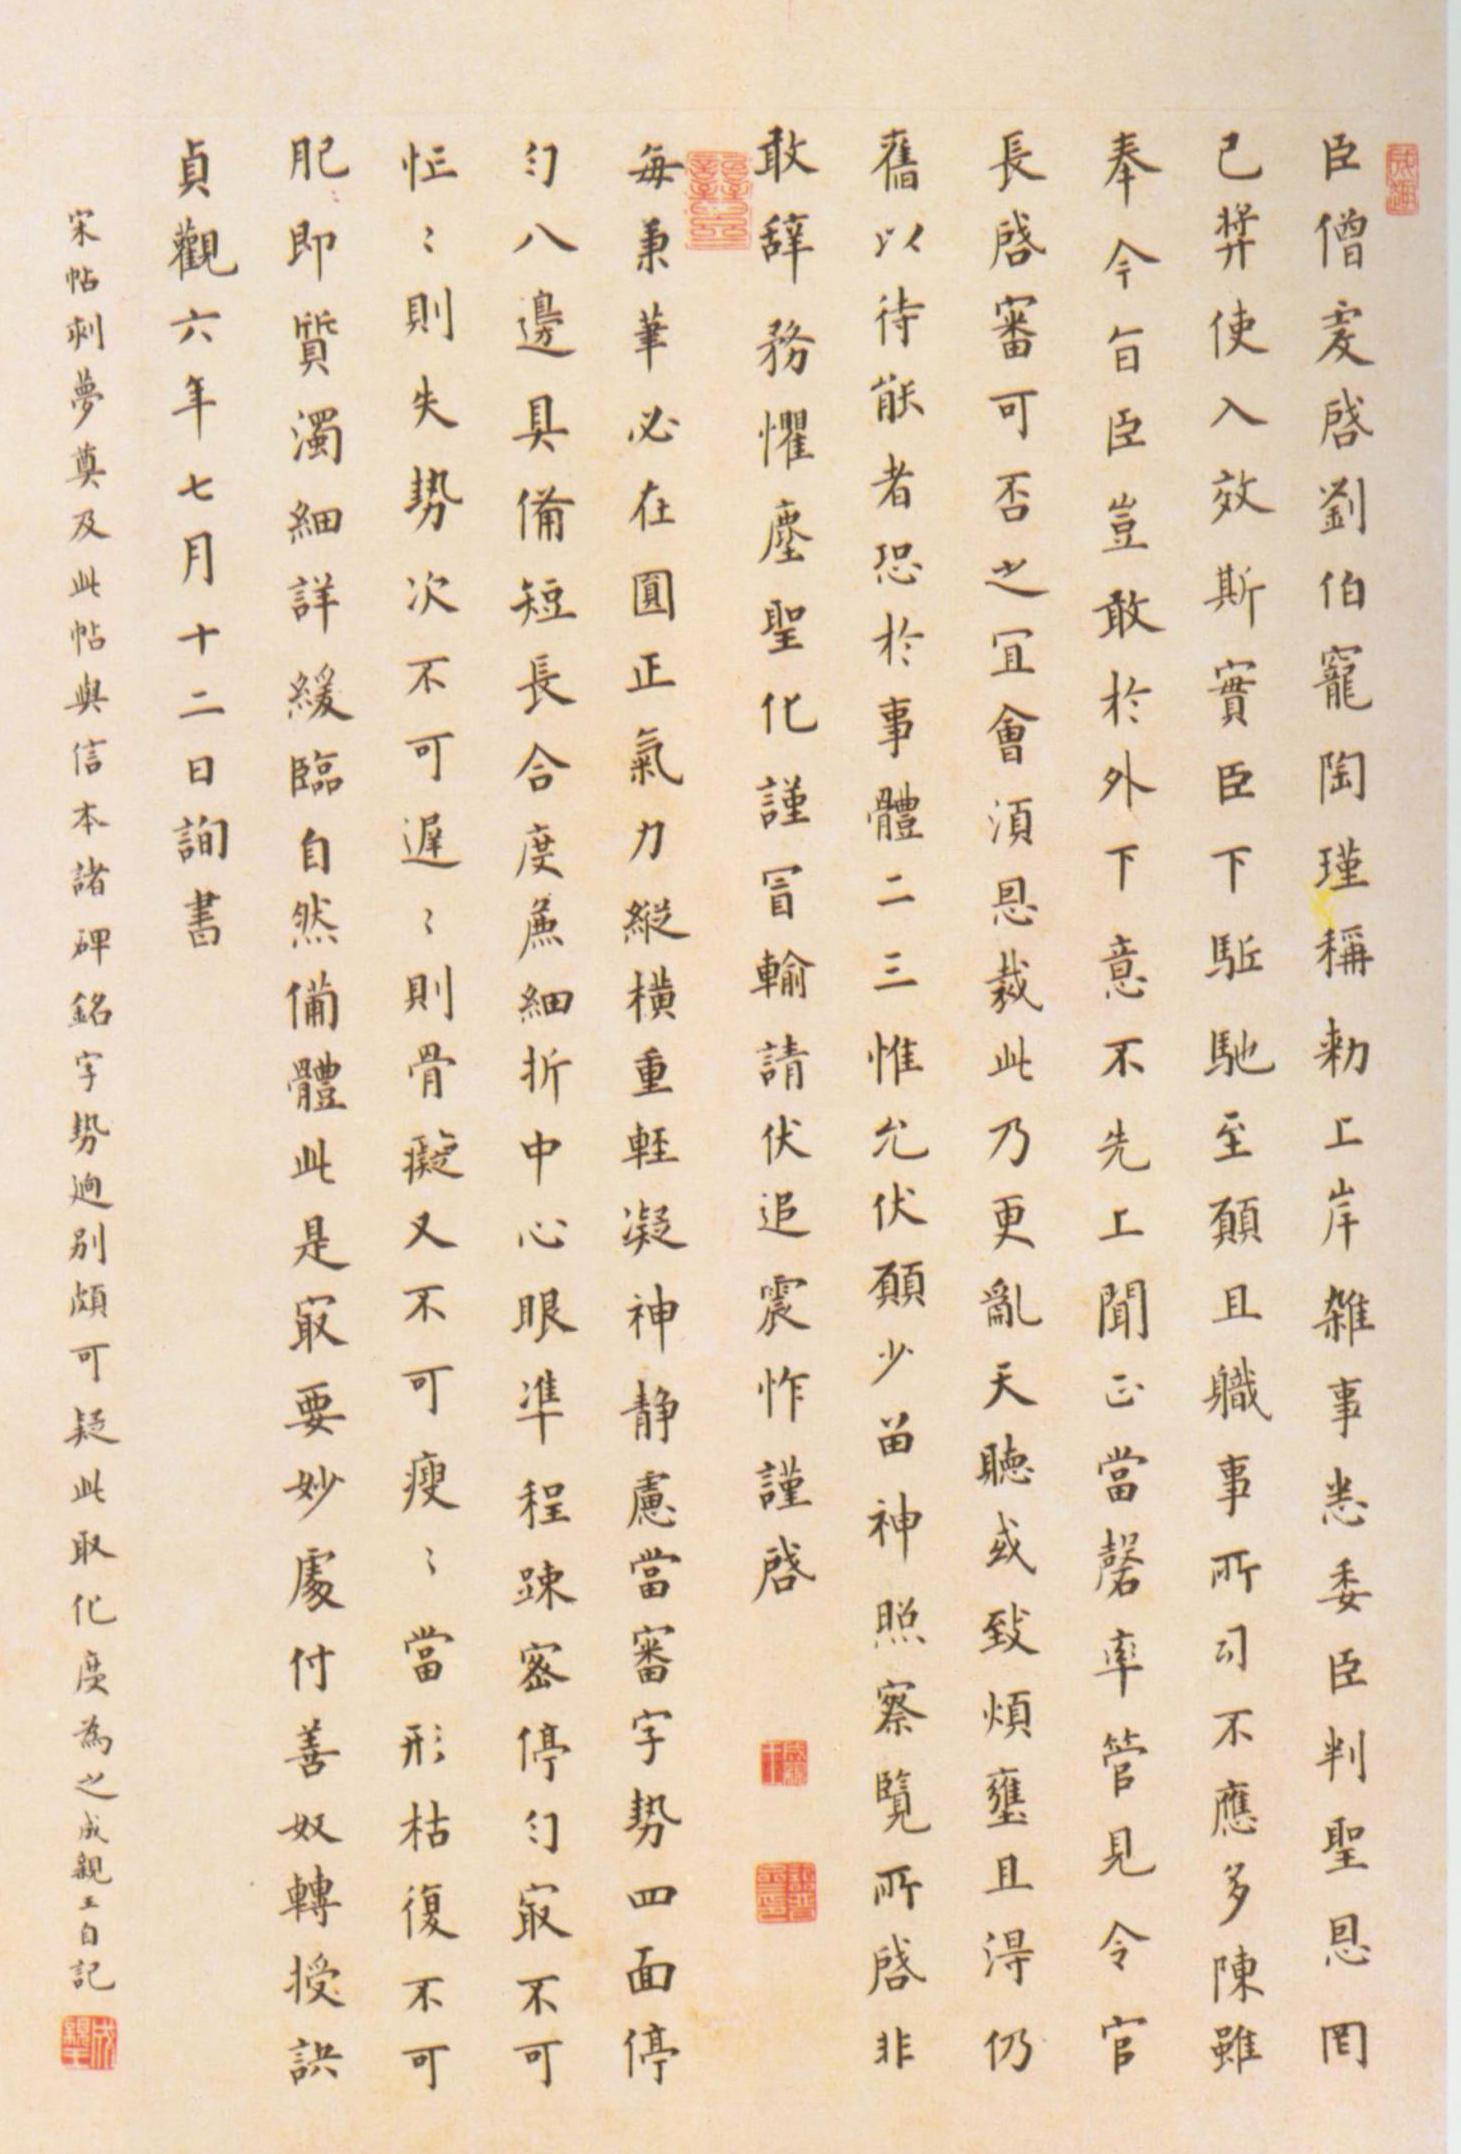 臣僧虔啓劉伯寵陶瑾稱勑上岸雜事悉委臣判聖恩罔
已弉使入效斯實臣下駈馳至願且職事所司不應多陳雖
奉今旨臣豈敢於外下意不先上聞正當罄率管見令官
長啓審可否之冝會須恩裁此乃更亂天聽或致煩壅且淂仍
舊以待能者恐於事體二三惟允伏願少留神照察覽所啓非
敢辞務懼塵聖化謹冒輸請伏追震怍謹啓
每秉筆必在圓正氣力縱橫重輕凝神静慮當審字勢四面停
匀八邊具備短長合度麁細折中心眼凖程踈密停匀㝡不可
怔〻則失勢次不可遲〻則骨癡又不可瘦〻當形枯復不可
肥即質濁細詳緩臨自然備體此是㝡要妙處付善奴轉授訣
貞觀六年七月十二日詢書
宋帖刺夢奠及此帖與信本諸碑銘字勢逈别頗可疑此取化度為之成親王自記